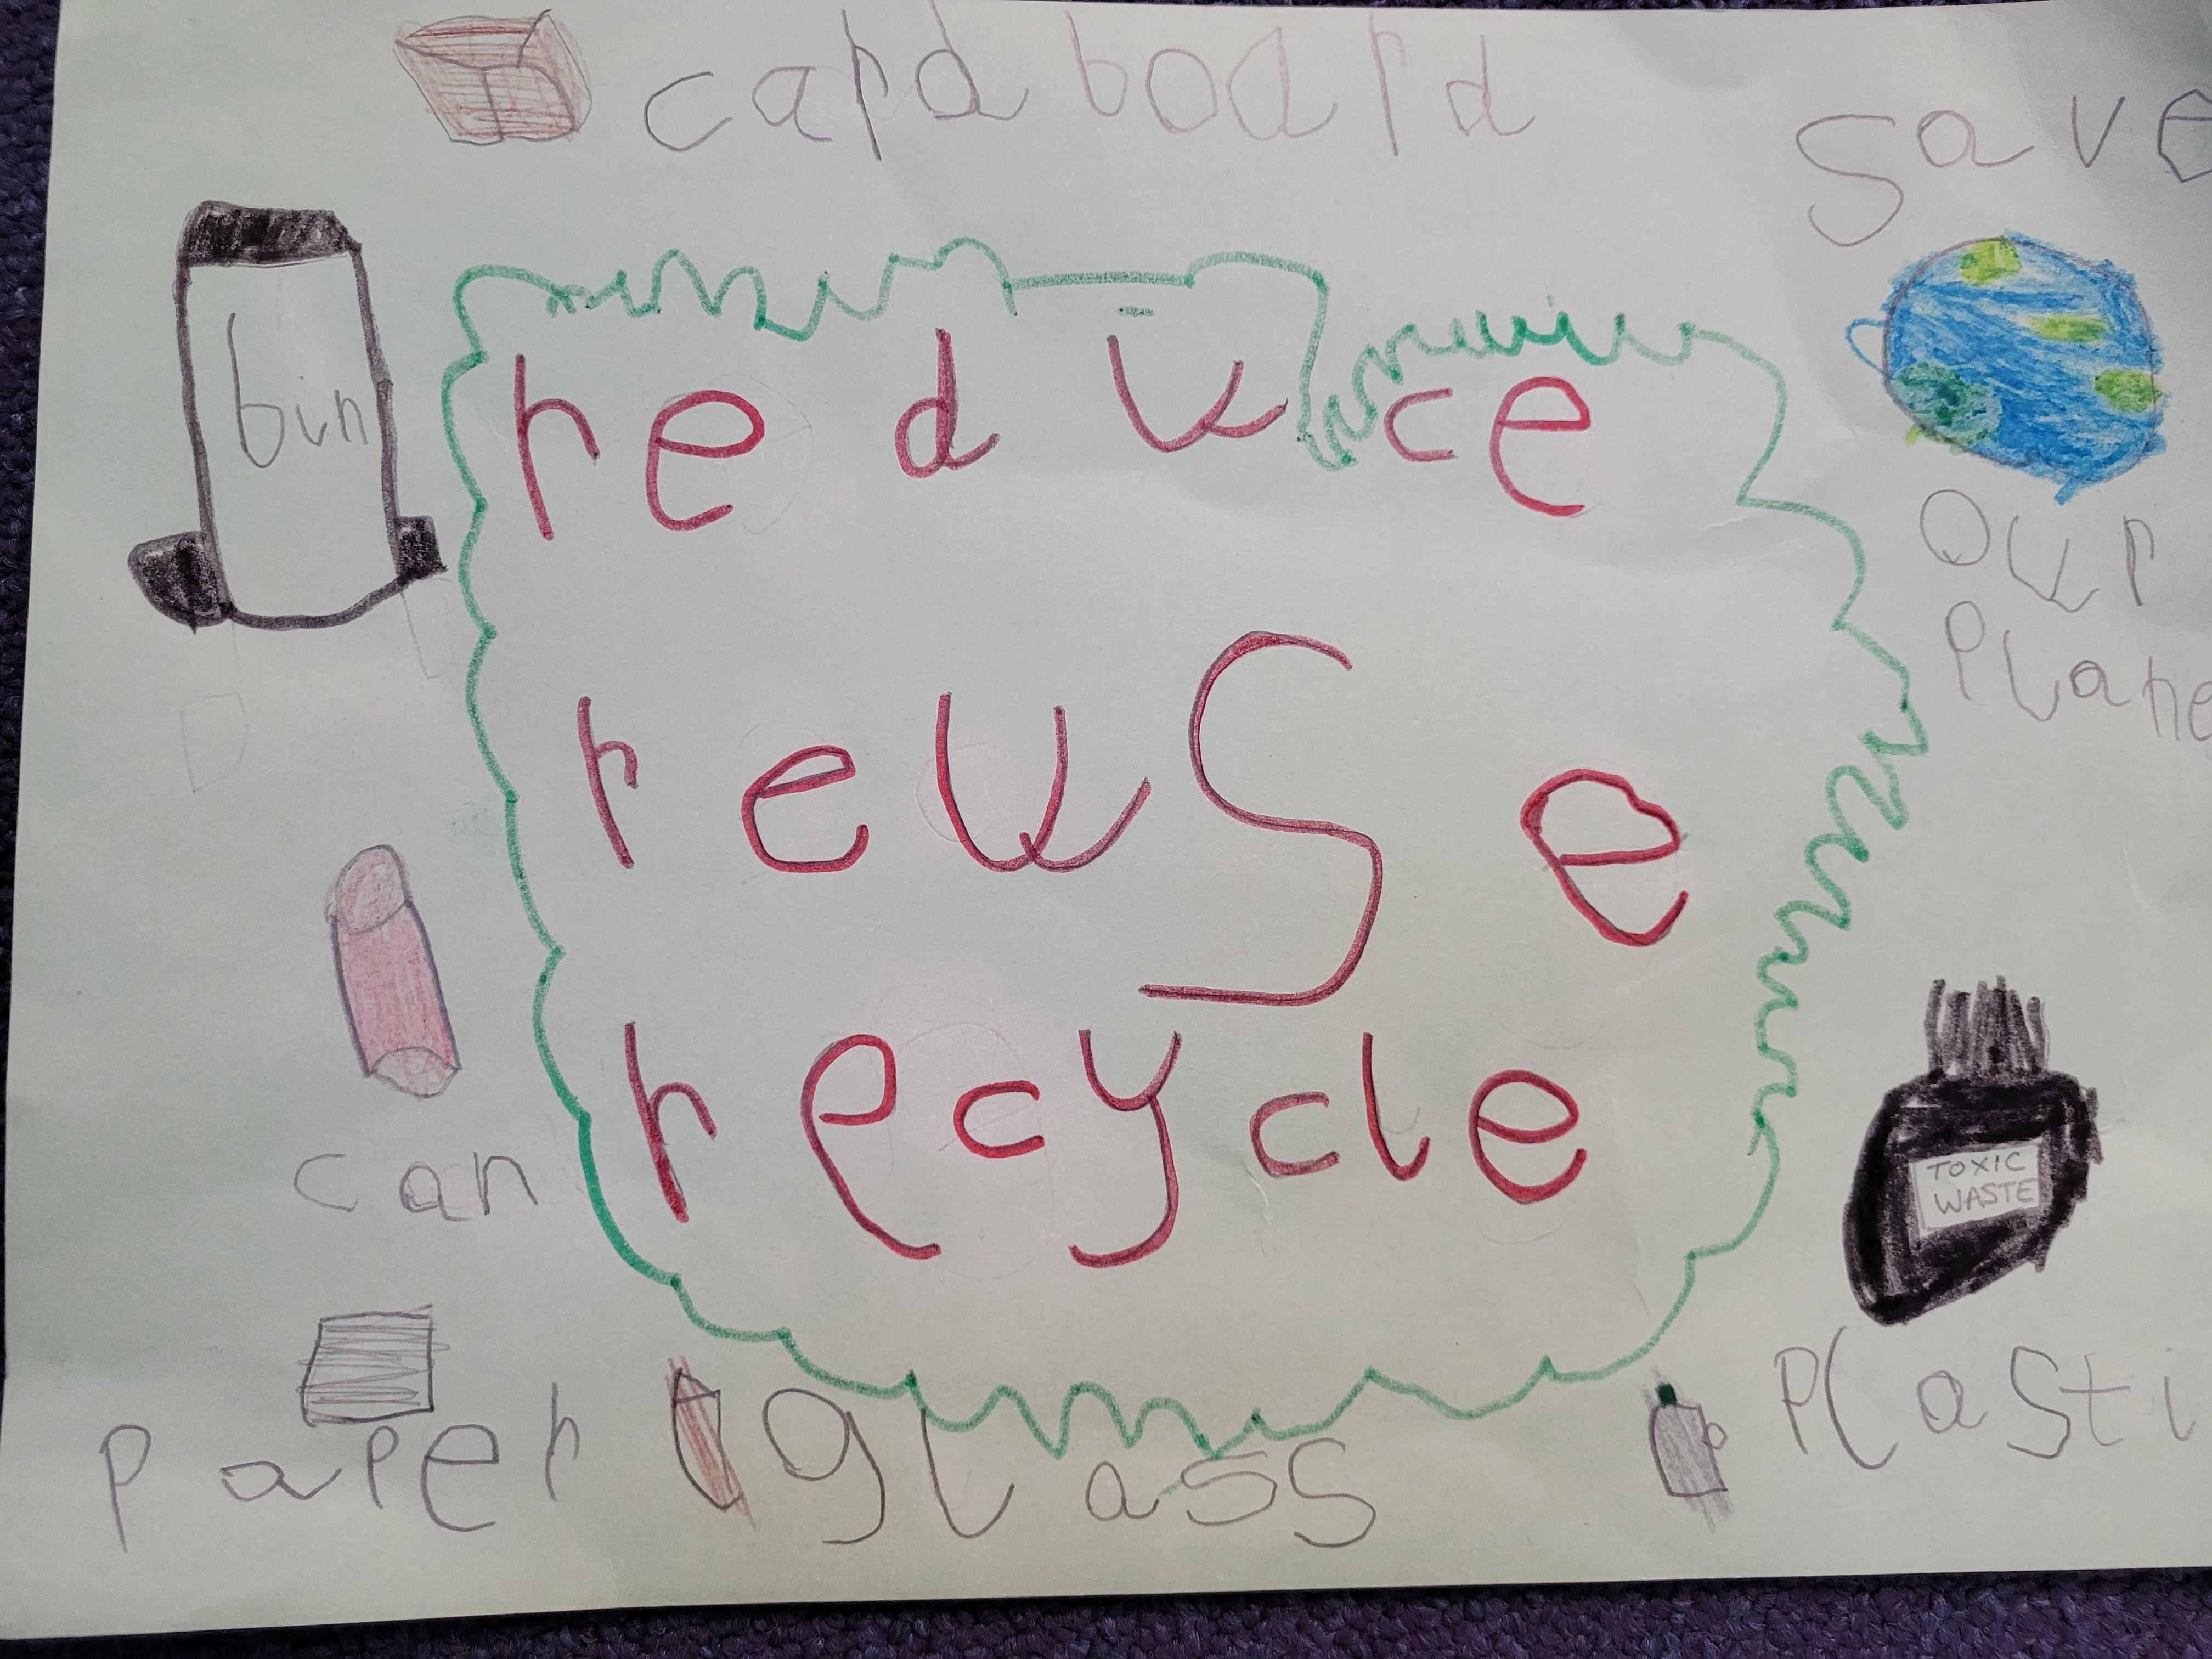 cardboard
save
bin
reduce
our
plane
reuse
recycle
can
TOXIC
WASTE
plasti
paper
glass